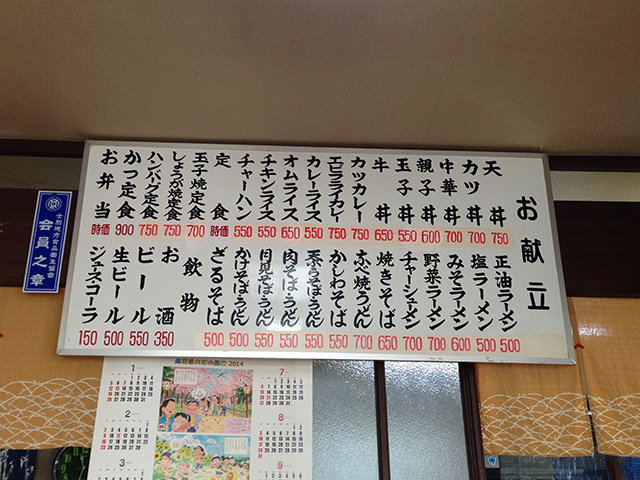 お献立
天丼 750
カツ丼 700
中華丼 700
親子丼 600
玉子丼 550
牛丼 650
カツカレー 750
エビフライカレー 750
カレーライス 550
オムライス 650
チキンライス 550
チャーハン 550
定食 時価
玉子焼定食 700
しょうが焼定食 750
ハンバーグ定食 750
かつ定食 900
お弁当 時価
正油ラーメン 500
塩ラーメン 500
みそラーメン 600
野菜ラーメン 700
チャーシューメン 700
焼きそば 650
なべ焼うどん 700
かしわそば 550
天ぷらそばうどん 550
肉そばうどん 550
月見そばうどん 550
かけそばうどん 500
ざるそば 500
飲物
お酒 350
ビール 550
生ビール 500
ジュースコーラ 150
士別地方食品衛生協会
会員之章
2014
1
2
3
7
8
9